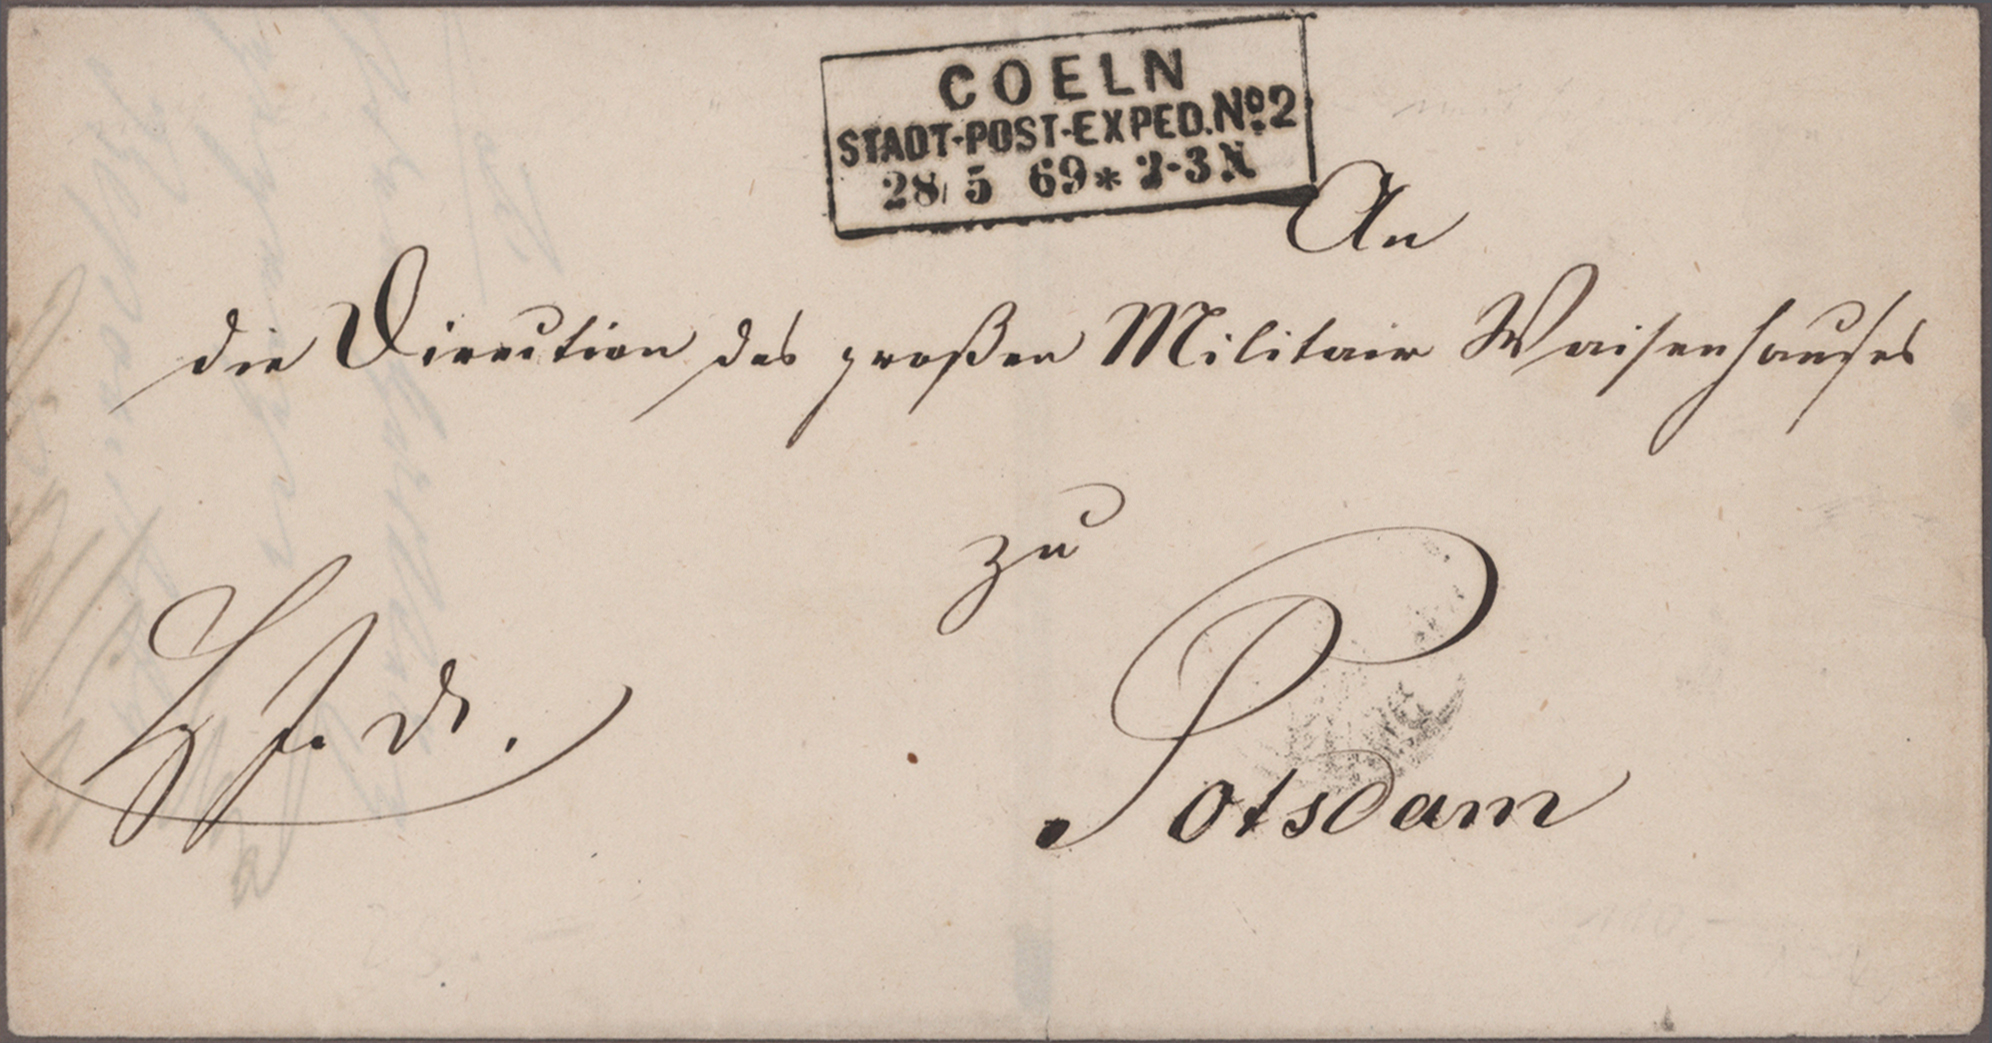 COELN
STADT-POST-EXPED. No. 2
28/5 69 * 2-3 N
An
die Direction des großen Militair Waisenhauses
zu
Potsdam